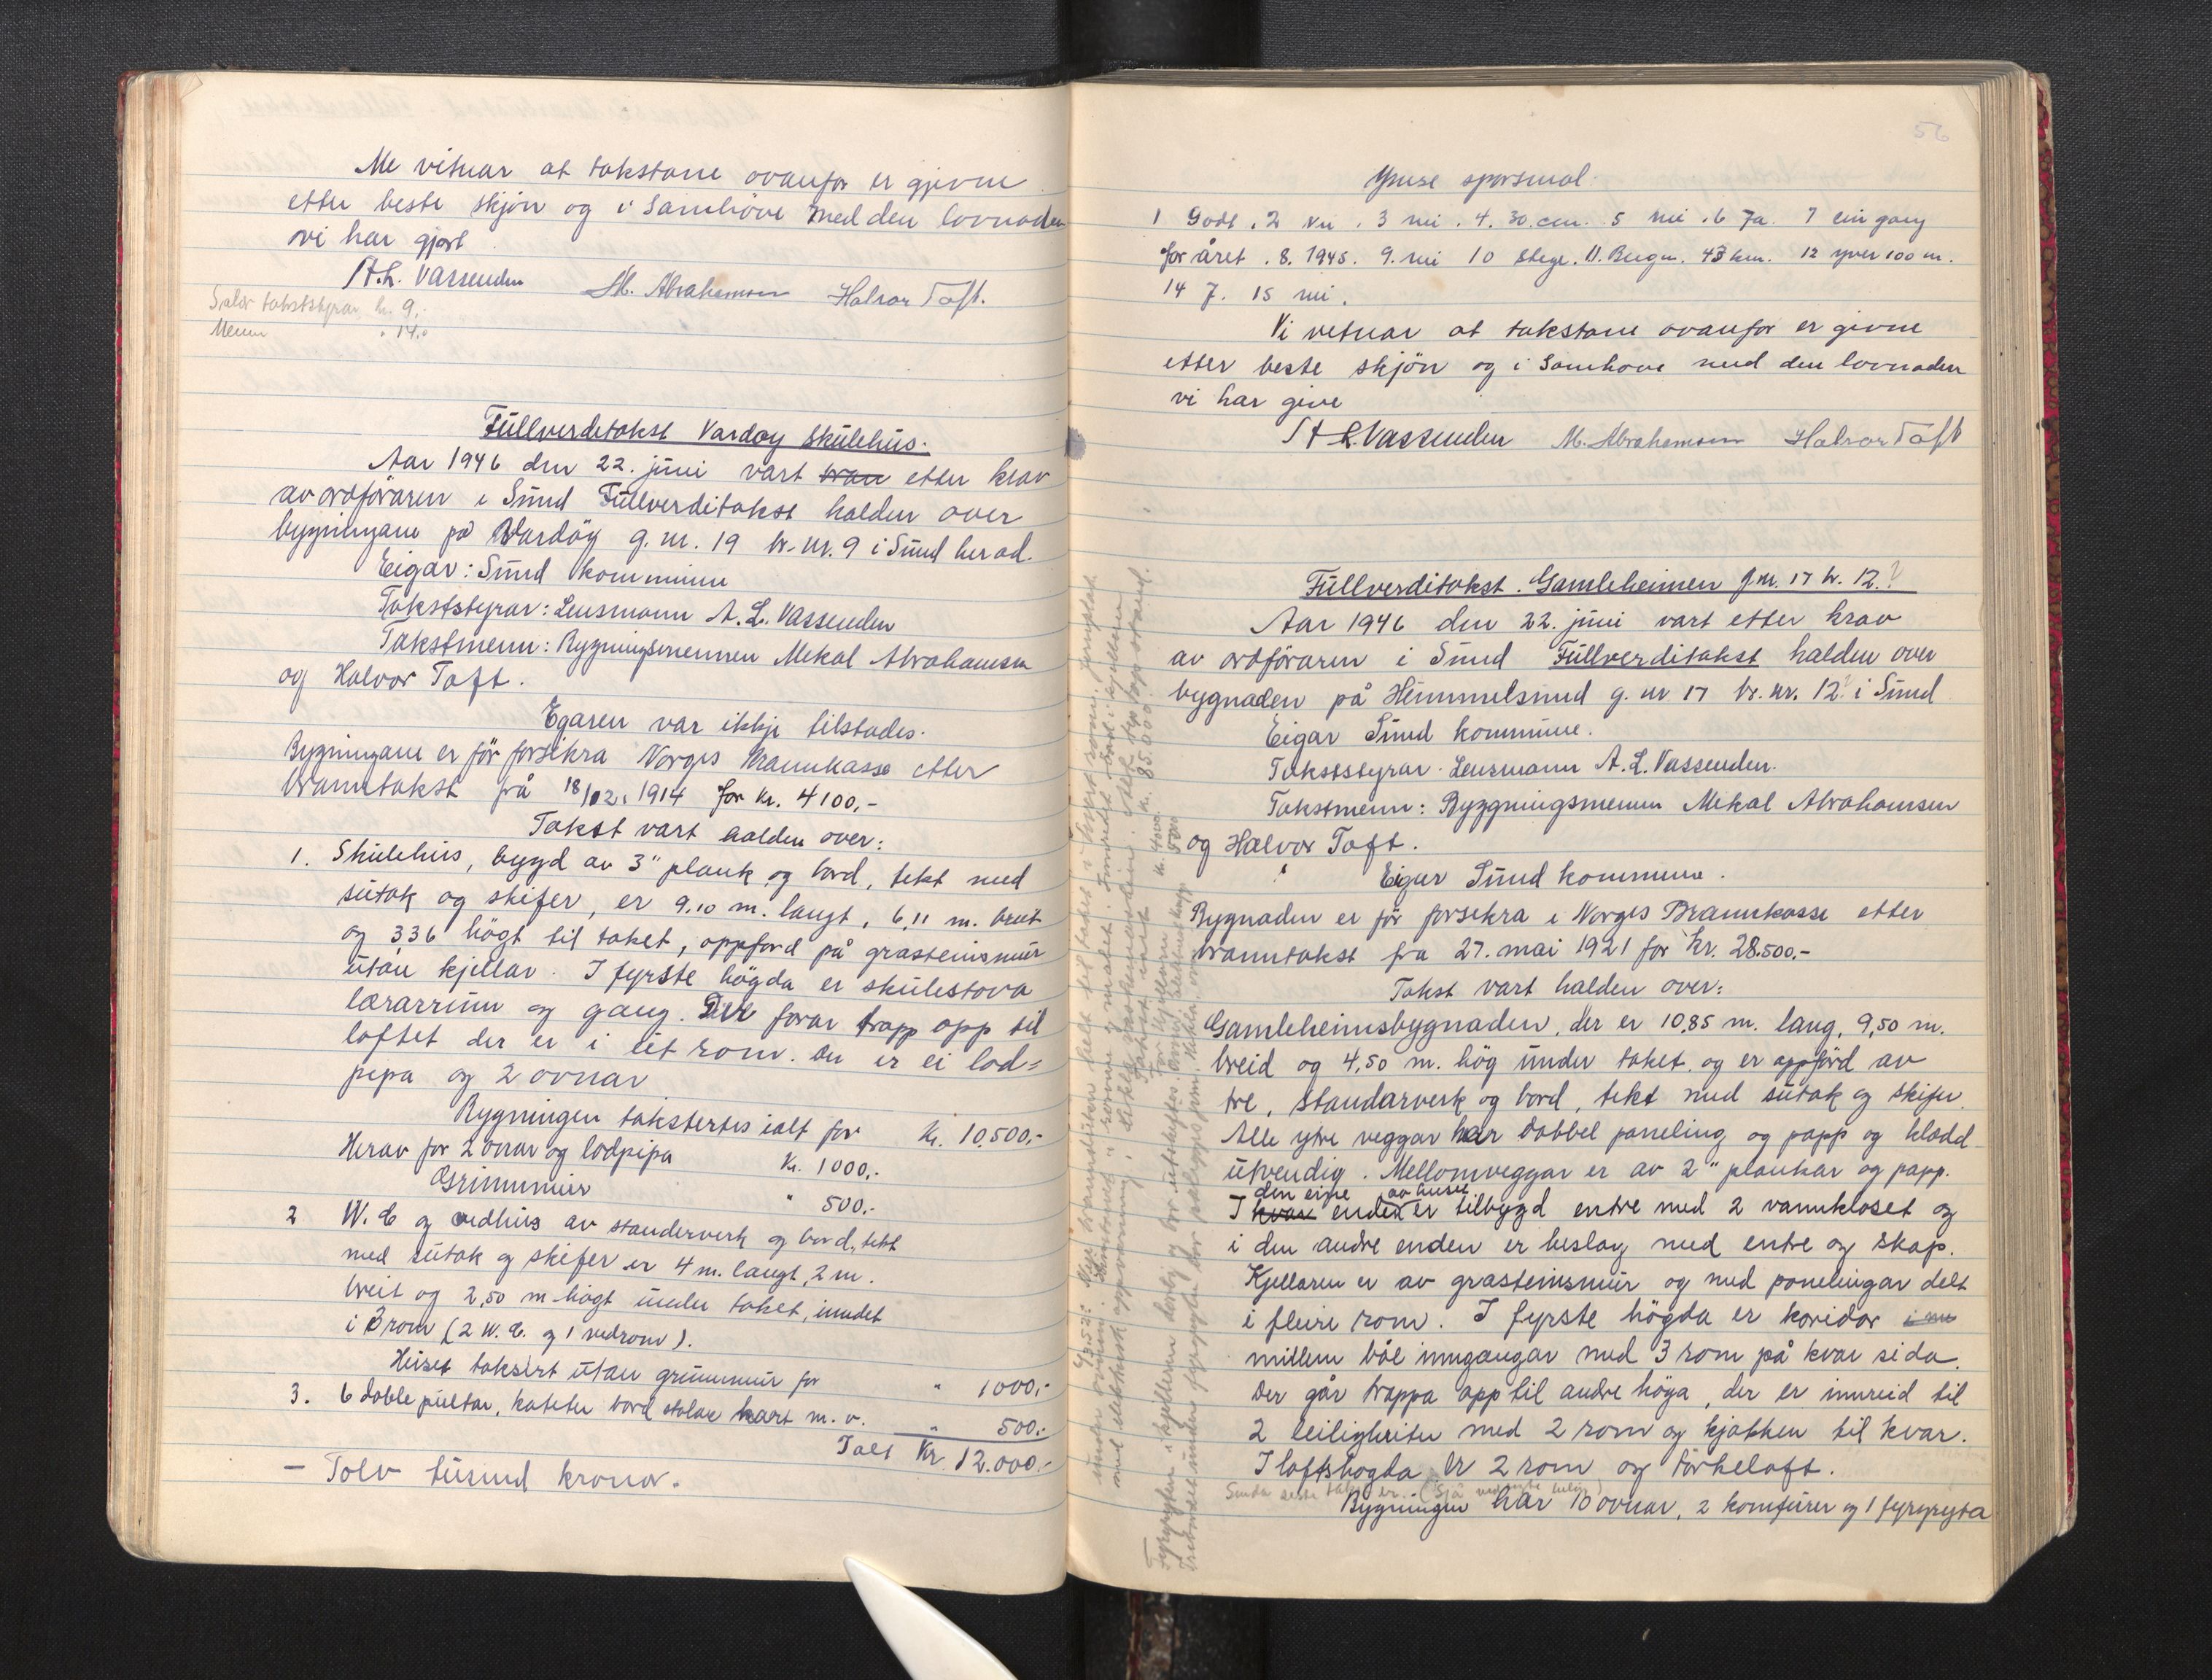 Me vitnar at takstane ovanfor er gjevne
etter beste skjön og i samhöve med den lovnaden
vi har gjort
A. L. Vassenden M. Abrahamsen Halvor Toft.
takststyrar kr. 9,-
Menn " 14,-
Fullverditakst Vardøy Skulehus.
Aar 1946 den 22. juni vart etter krav
av ordföraren i Sund Fullverditakst halden over
bygningane på Vardöy g. nr. 19 br. nr. 9 i Sund herad.
Eigar: Sund kommune
Takststyrar: Lensmann A. L. Vassenden
Takstmenn: Bygningsmennen Mekal Abrahamsen
og Halvor Toft.
Egaren var ikkje tilstades.
Bygningane er för forsikra Norges Brannkasse etter
branntakst frå 18/12. 1914 for kr. 4100,-
Takst vart halden over:
1. Skulehus, bygd av 3" plank og bord, tekt med
sutak og skifer, er 9.10 m. langt, 6,11 m. breit
og 3,36 högt til taket, oppford på grasteinsmur
utan kjellar. I fyrste högda er skulestova
lærarrum og gang. Der forar trapp opp til
loftet der er i eit rom. Der er ei lod=
pipa og 2 ovnar
Bygningen taksertes ialt for Kr. 10.500,-
Herav for 2 ovnar og lodpipa Kr. 1000,-
Grunnmur " 500,-
2 W. C og vedhus av standerverk og bord, tekt
med sutak og skifer er 4 m. langt, 2 m.
breit og 2,50 m högt under taket, inndelt
i 3 rom (2 W. C. og 1 vedrom).
Huset taksert utan grunnmur for " 1000,-
3. 6 doble pultar, kateter bord stolar kart m. v. " 500,-
Ialt Kr. 12.000.-
- Tolv tusund kronor.
56
Ymse sporsmal
1 Godt. 2 Nei. 3 nei. 4. 30. cm. 5 nei. 6 Ja. 7 ein gang
for året. 8. 1945. 9. nei 10 Stege. 11. Bergen. 43 km. 12 yver 100 m.
14 7. 15 nei.
Vi vetnar at takstane ovanfor er givne
etter beste skjön og i Samhove med den lovnaden
vi har give
A L. Vassenden M. Abrahamsen Halvor Toft
Fullverditakst. Gamleheimen g nr. 17 br. 12.?
Aar 1946 den 22. juni vart etter krav
av ordföraren i Sund Fullverditakst halden over
bygnaden på Hummelsund g. nr 17 br. nr. 12? i Sund
Eigar Sund kommune.
Takststyrar. Lensmann A. L. Vassenden.
Takstmenn: Byggningsmennen Mekal Abrahamsen
og Halvor Toft.
Eigar Sund kommune.
Bygnaden er för forsekra i Norges Brannkasse etter
branntakst fra 27. mai 1921 for kr. 28.500,-
Takst vart halden over:
Gamleheimsbygnaden, der er 10,85 m. lang, 9,50 m.
breid og 4,50 m. hög under taket, og er oppförd av
tre, standarverk og bord, tekt med sutak og skifer.
Alle ytre veggar har dobbel paneling og papp og klædd
utvendig. Mellomveggar er av 2" plankar og papp.
den eine av huset
I kvar enden er tilbygd entre med 2 vannkloset og
i den andre enden er beslag med entre og skap.
Kjellaren er av grasteinsmur og med panelingar delt
i fleire rom. I fyrste högda er koridor
millem båe inngangar med 3 rom på kvar sida.
Der går trappa opp til andre höga, der er innreid til
2 leiligheiter med 2 rom og kjøkken til kvar.
I loftshogda er 2 rom og tørkeloft.
Bygningen har 10 ovnar, 2 komfurer og 1 fyrgryta